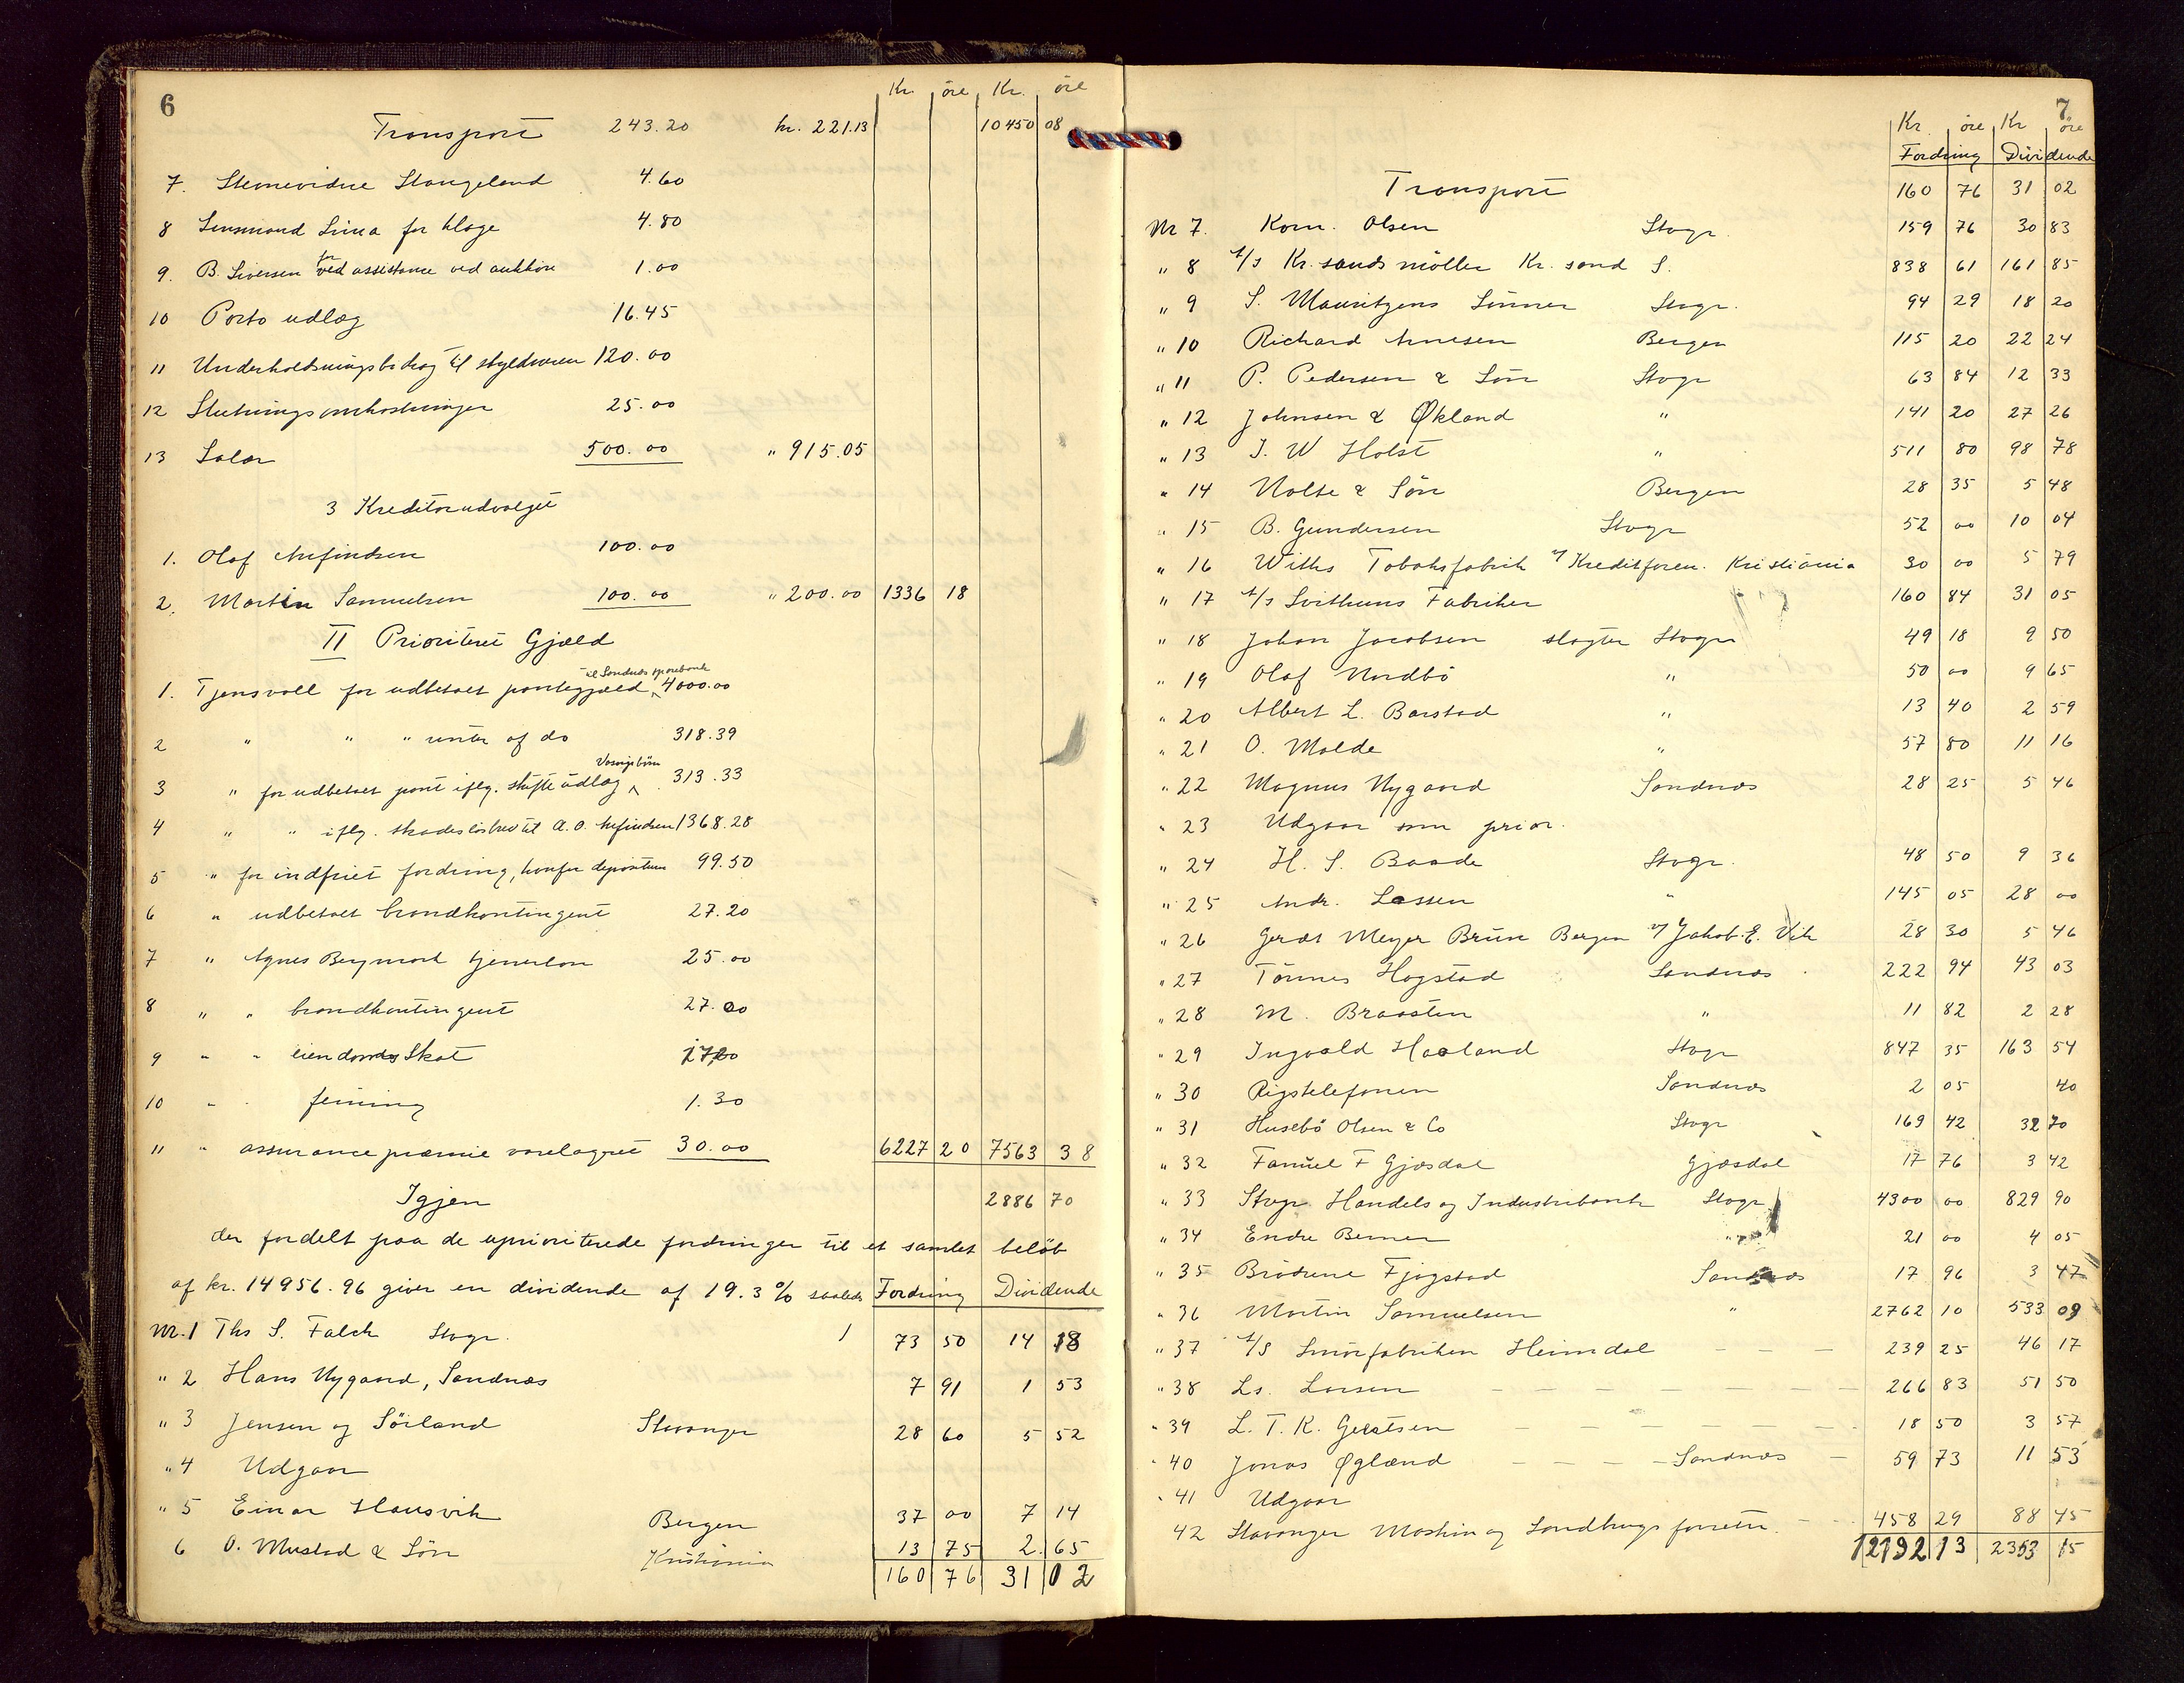 6
Kr. öre Kr. öre
Transport 243.20 kr. 221.13 10450 08
7. Stemevidne Stangeland 4.60
8 Lensmand Lima for kloge 4.80
9. B. Siversen for ved assistance ved auktion 1.00
10 Porto udlæg 16.45
11 Underholdningsbidrag til skyldneren 120.00
12 Slutningsomkostninger 25.00
13 Salær 500.00 " 915.05
3 Kreditorudvalget
1. Olaf Arefindsen 100.00
2. Martin Samuelsen 100.00 " 200.00 1336 18
II Prioriteret Gjæld
til Sandnæs sparebank
1. Tjensvoll for udbetalt pantegjæld 4000.00
2 " " " renter af do 318.39
3 " for udbetalt pant iflg. skifte udlæg 313.33
4 " " iflg. skadeslösbrev til A. O. Arefindsen 1368.28
5 " for indfriet fordring, konfer depositum 99.50
6 " udbetalt brandkontingent 27.20
7 " Agnes tjenerlön 25.00
8 " " brandkontingent 27.20
9 " " eiendoms Skat
10 " " feining 1.30
11 " assurancepræmie varelageret 30.00 6227 20 7563 38
Igjen 2886 70
der fordelt paa de uprioriterede fordringer til et samlet belöb
af kr. 14956.96 giver en dividende af 19.3 % saaledes Fordring Dividende
Nr. 1 Ths S. Falck Stvgr. 73 50 14 18
" 2 Hans Nygaard, Sandnæs 7 91 1 53
" 3 Jensen og Söiland Stavanger 28 60 5 52
" 4 Udgaar
" 5 Einar Hausvik Bergen 37 00 7 14
6 O. Mustad & Sön Kristiania 13 75 2.65
160 76 31 02
7.
Kr. öre Kr öre
Fordring Dividende
Transport 160 76 31 02
Nr 7. Korn. Olsen Stvgr. 159 76 30 83
" 8 A/s Kr.sands mölle Kr. sand S. 838 61 161 85
" 9 S. Mauritzens Sönner Stvgr. 94 29 18 20
" 10 Richard Arnesen Bergen 115 20 22 24
" 11 P. Pedersen & Sön Stvgr 63 84 12 33
" 12 Johnsen & Økland " 141 20 27 26
" 13 I. W Holst " 511 80 98 78
" 14 Nolte & Sön Bergen 28 35 5 48
" 15 B. Gundersen Stvgr 52 00 10 04
" 16 Withs Tobaksfabrik v/ Kreditforen. Kristiania 30 00 5 79
" 17 A/s Svithuns Fabriker 160 84 31 05
" 18 Johan Jacobsen slagter Stvgr 49 18 9 50
" 19 Olaf Nordbö " 50 00 9 65
" 20 Albert L. Barstad " 13 40 2 59
" 21 O. Molde " 57 80 11 16
" 22 Magnus Nygaard Sandnæs 28 25 5 46
" 23 Udgaar som prior.
" 24 H. S. Baade Stvgr. 48 50 9 36
" 25 Andr. Lassen " 145 05 28 00
" 26 Gerdt Meyer Bruun Bergen v/ Jakob. E. Vik 28 30 5 46
" 27 Tönnes Hogstad Sandnæs 222 94 43 03
" 28 M. Braastein " 11 82 2 28
" 29 Ingvald Haaland Stvgr 847 35 163 54
" 30 Rigstelefonen Sandnæs 2 05 40
" 31 Husebö Olsen & Co Stvgr 169 42 32 70
" 32 Fanuel F Gjæsdal Gjæsdal 17 76 3 42
" 33 Stvgr Handels og Industribank Stvgr 4300 00 829 90
" 34 Endre Berner " 21 00 4 05
" 35 Brödrene Fjogstad Sandnæs 17 96 3 47
" 36 Martin Samuelsen " 2762 10 533 09
" 37 A/S Smörfabriken Heimdal — — — 239 25 46 17
" 38 Ls. Larsen — — — 266 83 51 50
" 39 L. T. K. Geratsen — — — 18 50 3 57
" 40 Jonas Øglænd — — — Sandnæs — 59 73 11 53
" 41 Udgaar
42 Stavanger Maskin og Landbrugs forretn. — 458 29 88 45
12192 13 2353 15